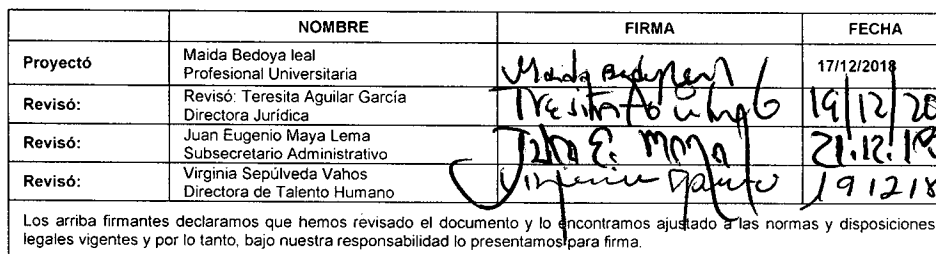 NOMBRE FIRMA FECHA
Proyectó Maida Bedoya leal
Profesional Universitaria Maida Bedoya leal 17/12/2018
Revisó: Revisó: Teresita Aguilar García
Directora Jurídica 19/12/20
Revisó: Juan Eugenio Maya Lema
Subsecretario Administrativo Juan E. Maya 21.12.18
Revisó: Virginia Sepúlveda Vahos
Directora de Talento Humano Virginia 191218
Los arriba firmantes declaramos que hemos revisado el documento y lo encontramos ajustado a las normas y disposiciones
legales vigentes y por lo tanto, bajo nuestra responsabilidad lo presentamos para firma.